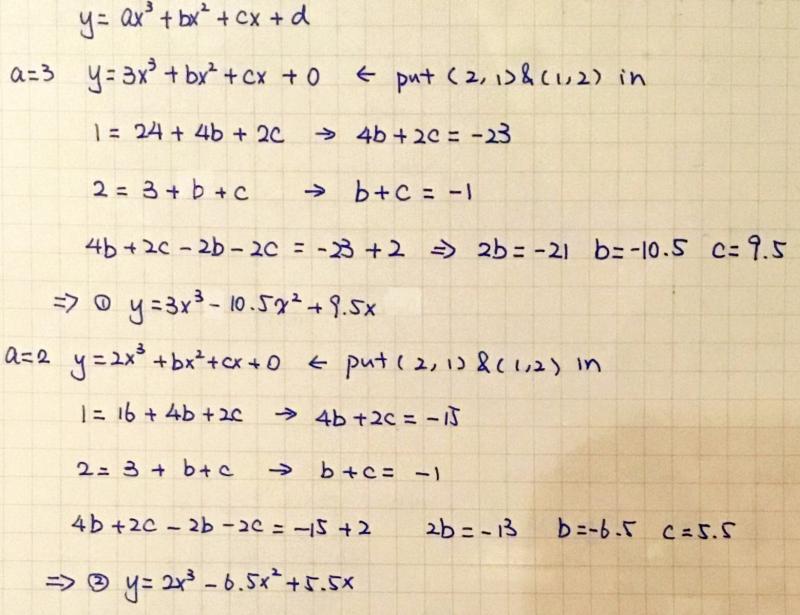 y = ax³ + bx² + cx + d
a=3 y = 3x³ + bx² + cx + 0 ← put (2,1)&(1,2) in
1 = 24 + 4b + 2c → 4b + 2c = -23
2 = 3 + b + c → b + c = -1
4b + 2c - 2b - 2c = -23 + 2 ⇒ 2b = -21 b = -10.5 c = 9.5
⇒ ① y = 3x³ - 10.5x² + 9.5x
a=2 y = 2x³ + bx² + cx + 0 ← put (2,1) & (1,2) in
1 = 16 + 4b + 2c → 4b + 2c = -15
2 = 3 + b + c → b + c = -1
4b + 2c - 2b - 2c = -15 + 2 2b = -13 b = -6.5 c = 5.5
⇒ ② y = 2x³ - 6.5x² + 5.5x